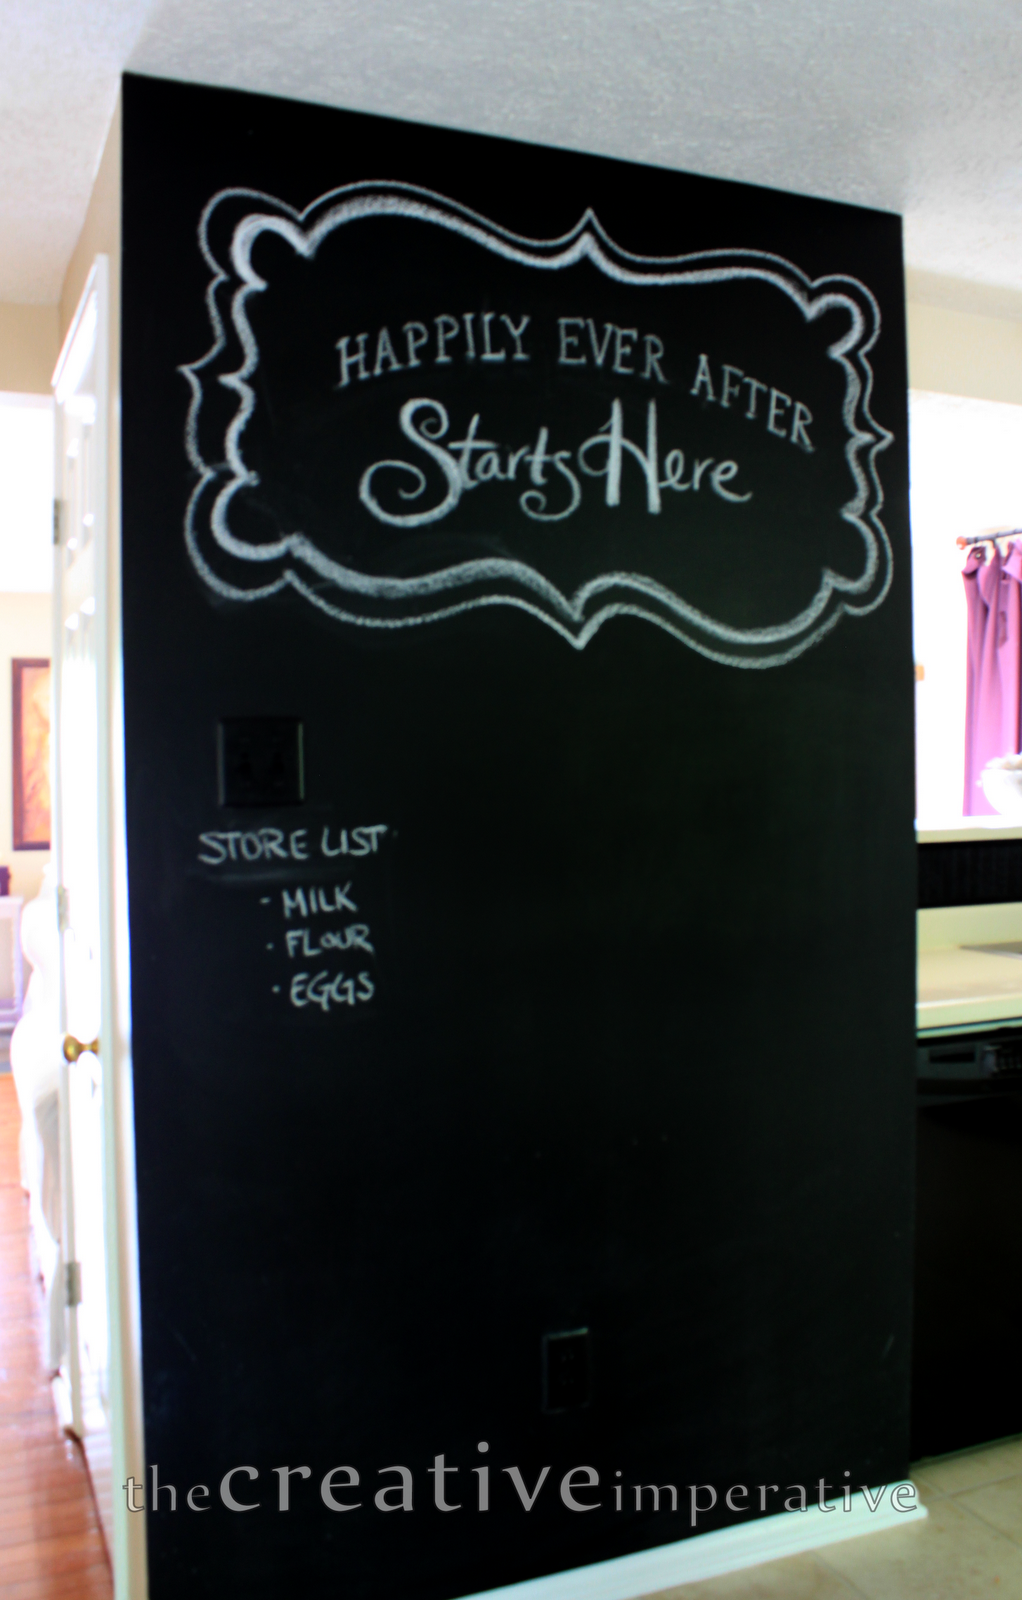 HAPPILY EVER AFTER
Starts Here
STORE LIST
- MILK
· FLOUR
· EGGS
thecreativeimperative